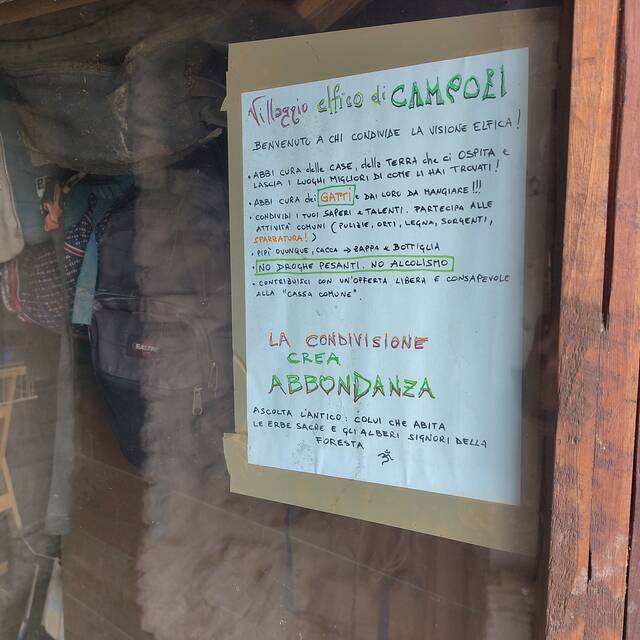 Villaggio elfico di CAMPORI
BENVENUTO A CHI CONDIVIDE LA VISIONE ELFICA!
• ABBI CURA delle CASE, della TERRA che ci OSPITA e
LASCIA I LUOGHI MIGLIORI DI COME LI HAI TROVATI!
• ABBI CURA dei GATTI e DAI LORO DA MANGIARE!!!
• CONDIVIDI I TUOI SAPERI e TALENTI. PARTECIPA ALLE
ATTIVITA' COMUNI (PULIZIE, ORTI, LEGNA, SORGENTI,
SPARRATURA!)
• PIPÌ OVUNQUE, CACCA → ZAPPA e BOTTIGLIA
• NO DROGHE PESANTI. NO ALCOLISMO
• CONTRIBUISCI CON UN'OFFERTA LIBERA E CONSAPEVOLE
ALLA "CASSA COMUNE".
LA CONDIVISIONE
CREA
ABBONDANZA
ASCOLTA L'ANTICO: COLUI CHE ABITA
LE ERBE SACRE E GLI ALBERI SIGNORI DELLA
FORESTA ॐ
EASTPAK